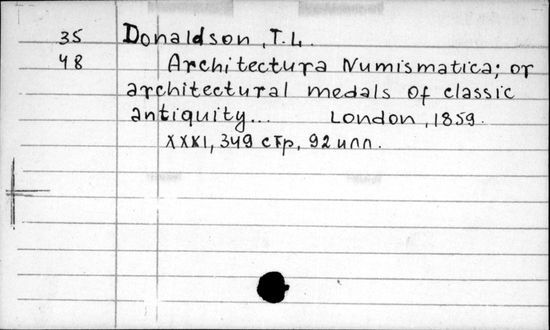 35 Donaldson, T.L.
48 Architectura Numismatica; or
architectural medals of classic
antiquity... London, 1859.
XXXI, 349 стр., 92 илл.